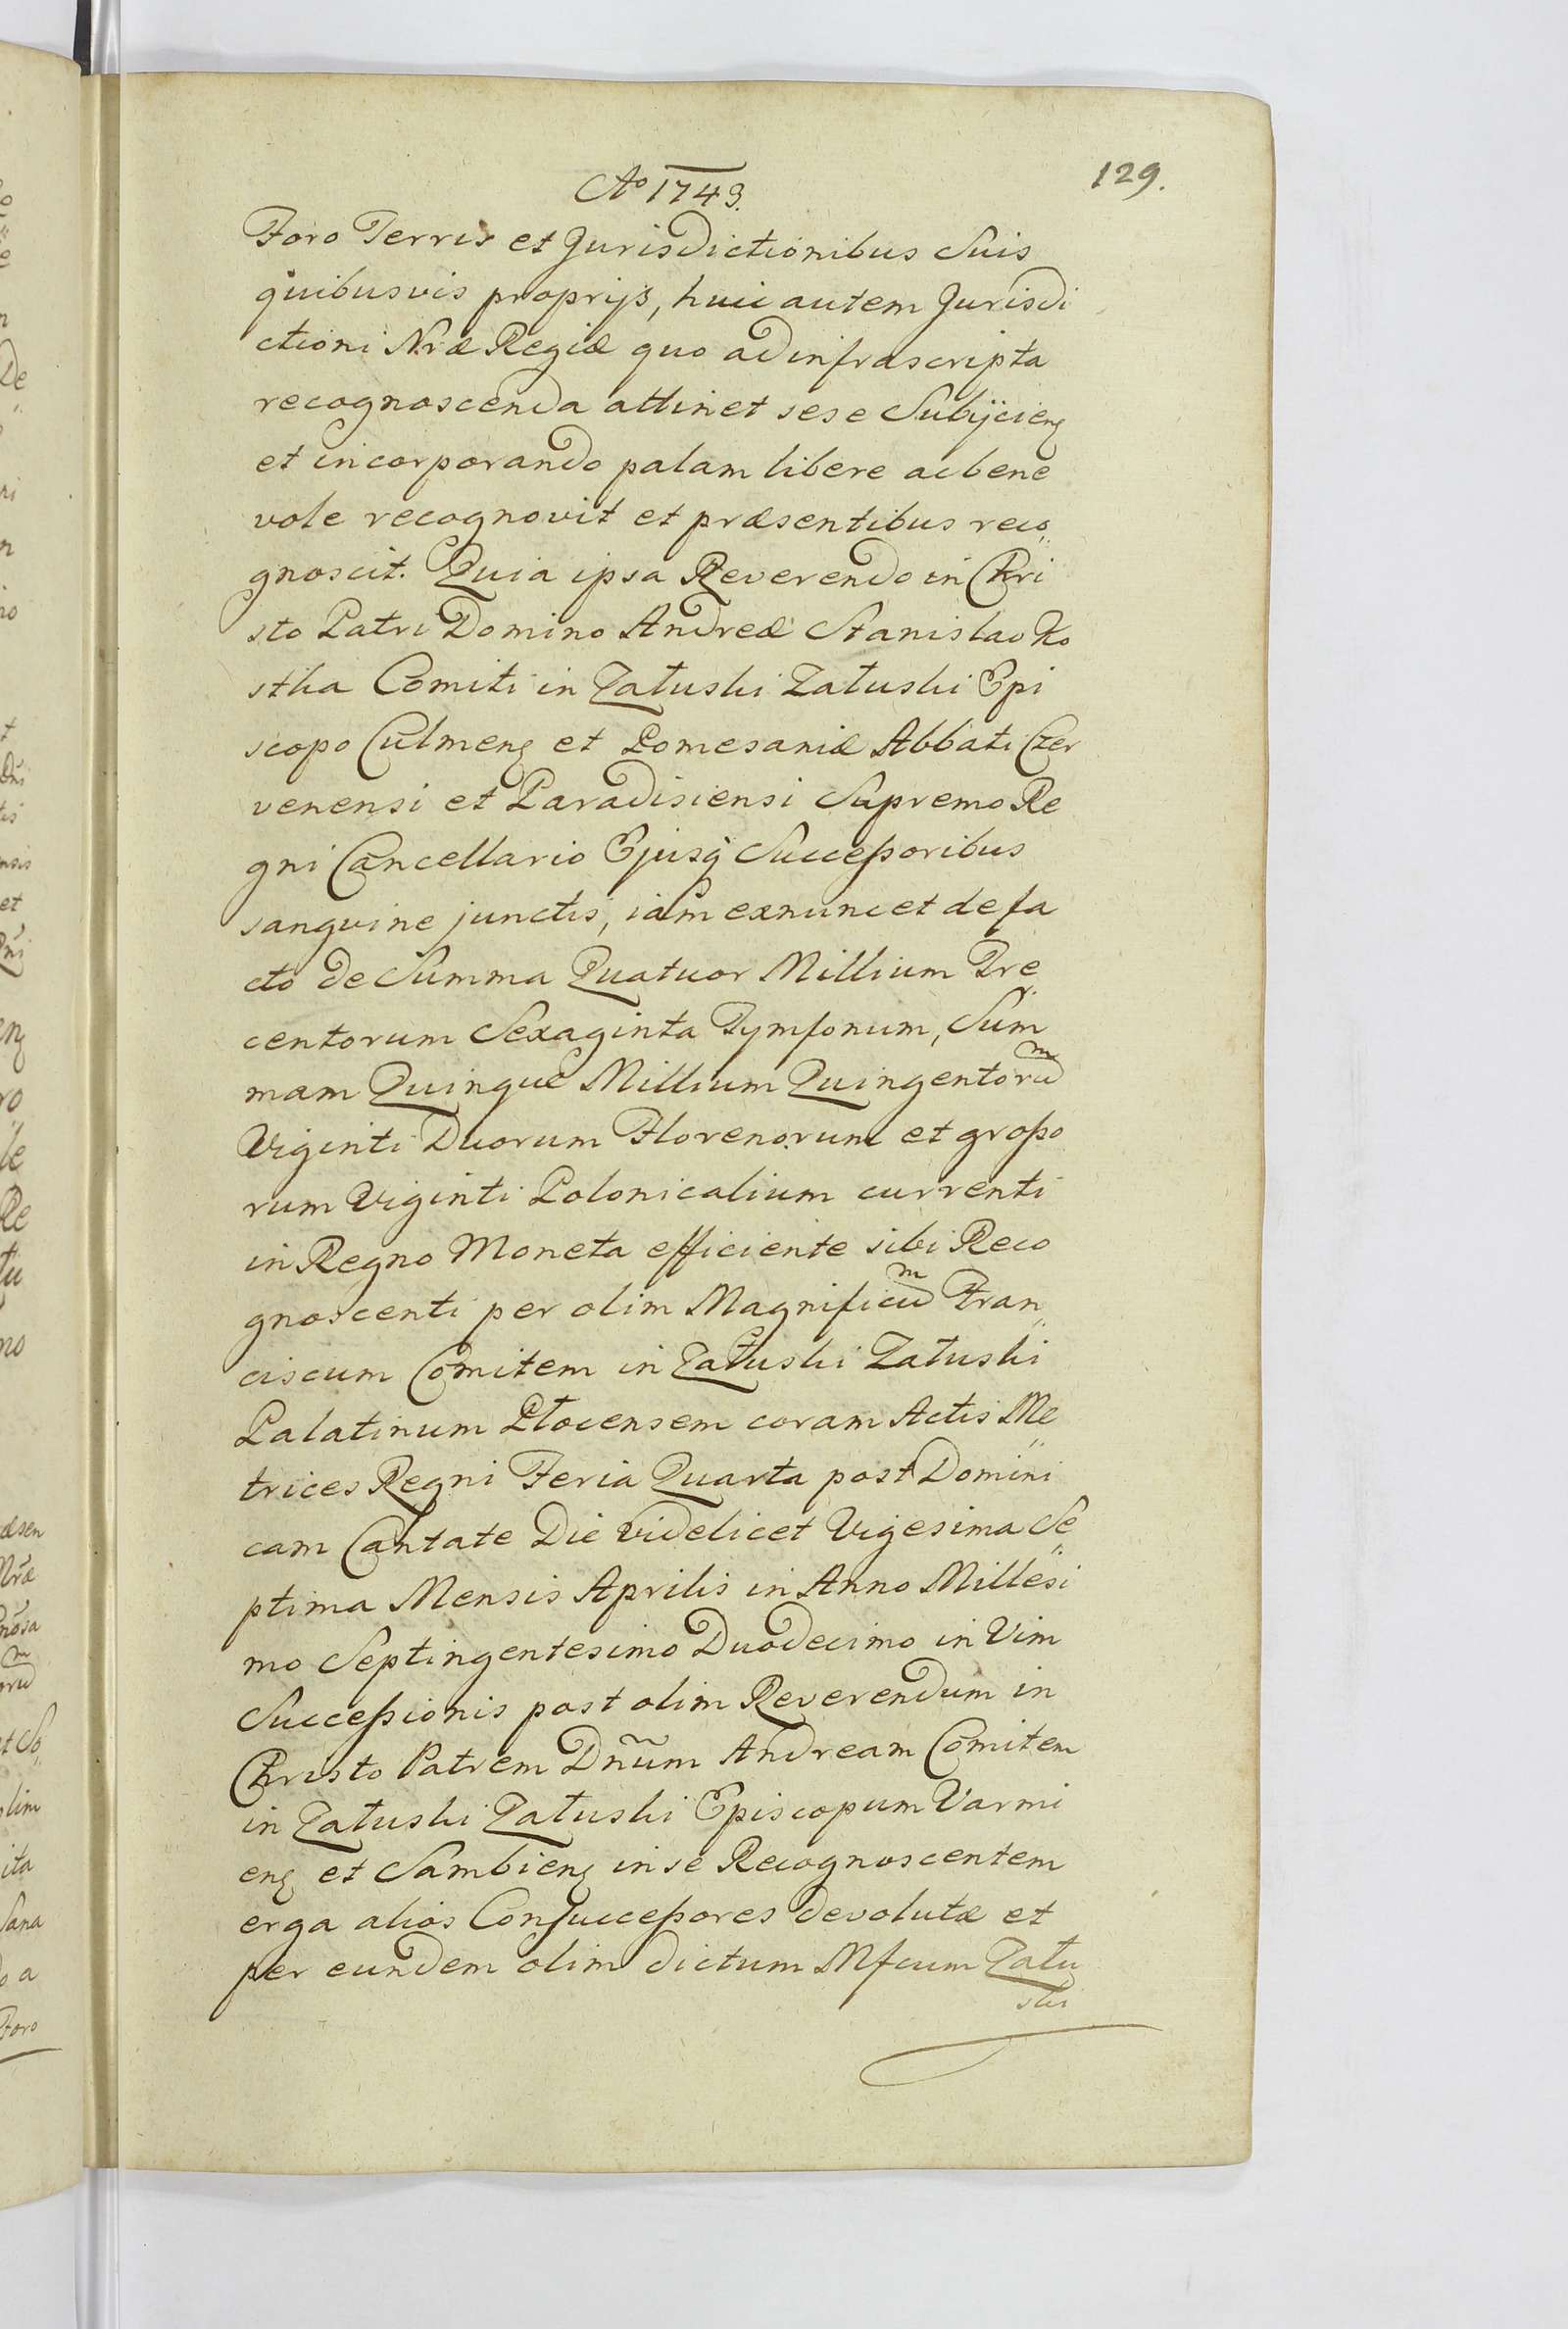 129.
Ao 1743.
Foro Terris et Jurisdictionibus Suis
quibusvis proprijs, huic autem Jurisdi
ctioni Nræ Regiæ quo ad infrascripta
recognoscenda attinet sese Subijcieng
et incorporando palam libere ac bene
vole recognovit et præsentibus reco„
gnoscit. Quia ipsa Reverendo in Chri
sto Patri Domino Andreæ Stanislao Ko
stka Comiti in Załuski Załuski Epi
scopo Culmeng et Pomesaniæ Abbati Czer
venensi et Paradisiensi Supremo Re
gni Cancellario Ejusq Succeßoribus
sanguine junctis, iam exnunc et de fa
cto de Summa Quatuor Millium Tre„
centorum Sexaginta Tymfonum, Sum
mam Quinque Millium Quingentorum
Viginti Duorum Florenorum et großo
rum Viginti Polonicalium currenti
in Regno Moneta efficiente sibi Reco
gnoscenti per olim Magnificum Fran„
ciscum Comitem in Załuski Załuski
Palatinum Płocensem coram Actis Me„
trices Regni Feria Quarta post Domini
cam Cantate Die videlicet Vigesima Se„
ptima Mensis Aprilis in Anno Millesi
mo Septingentesimo Duodecimo in Vim
Succeßionis post olim Reverendum in
Christo Patrem Dnum Andream Comitem
in Załuski Załuski Episcopum Varmi
eng et Sambieng in se Recognoscentem
erga alios Consucceßores devolutæ et
per eundem olim dictum Mfcum Zału
ski